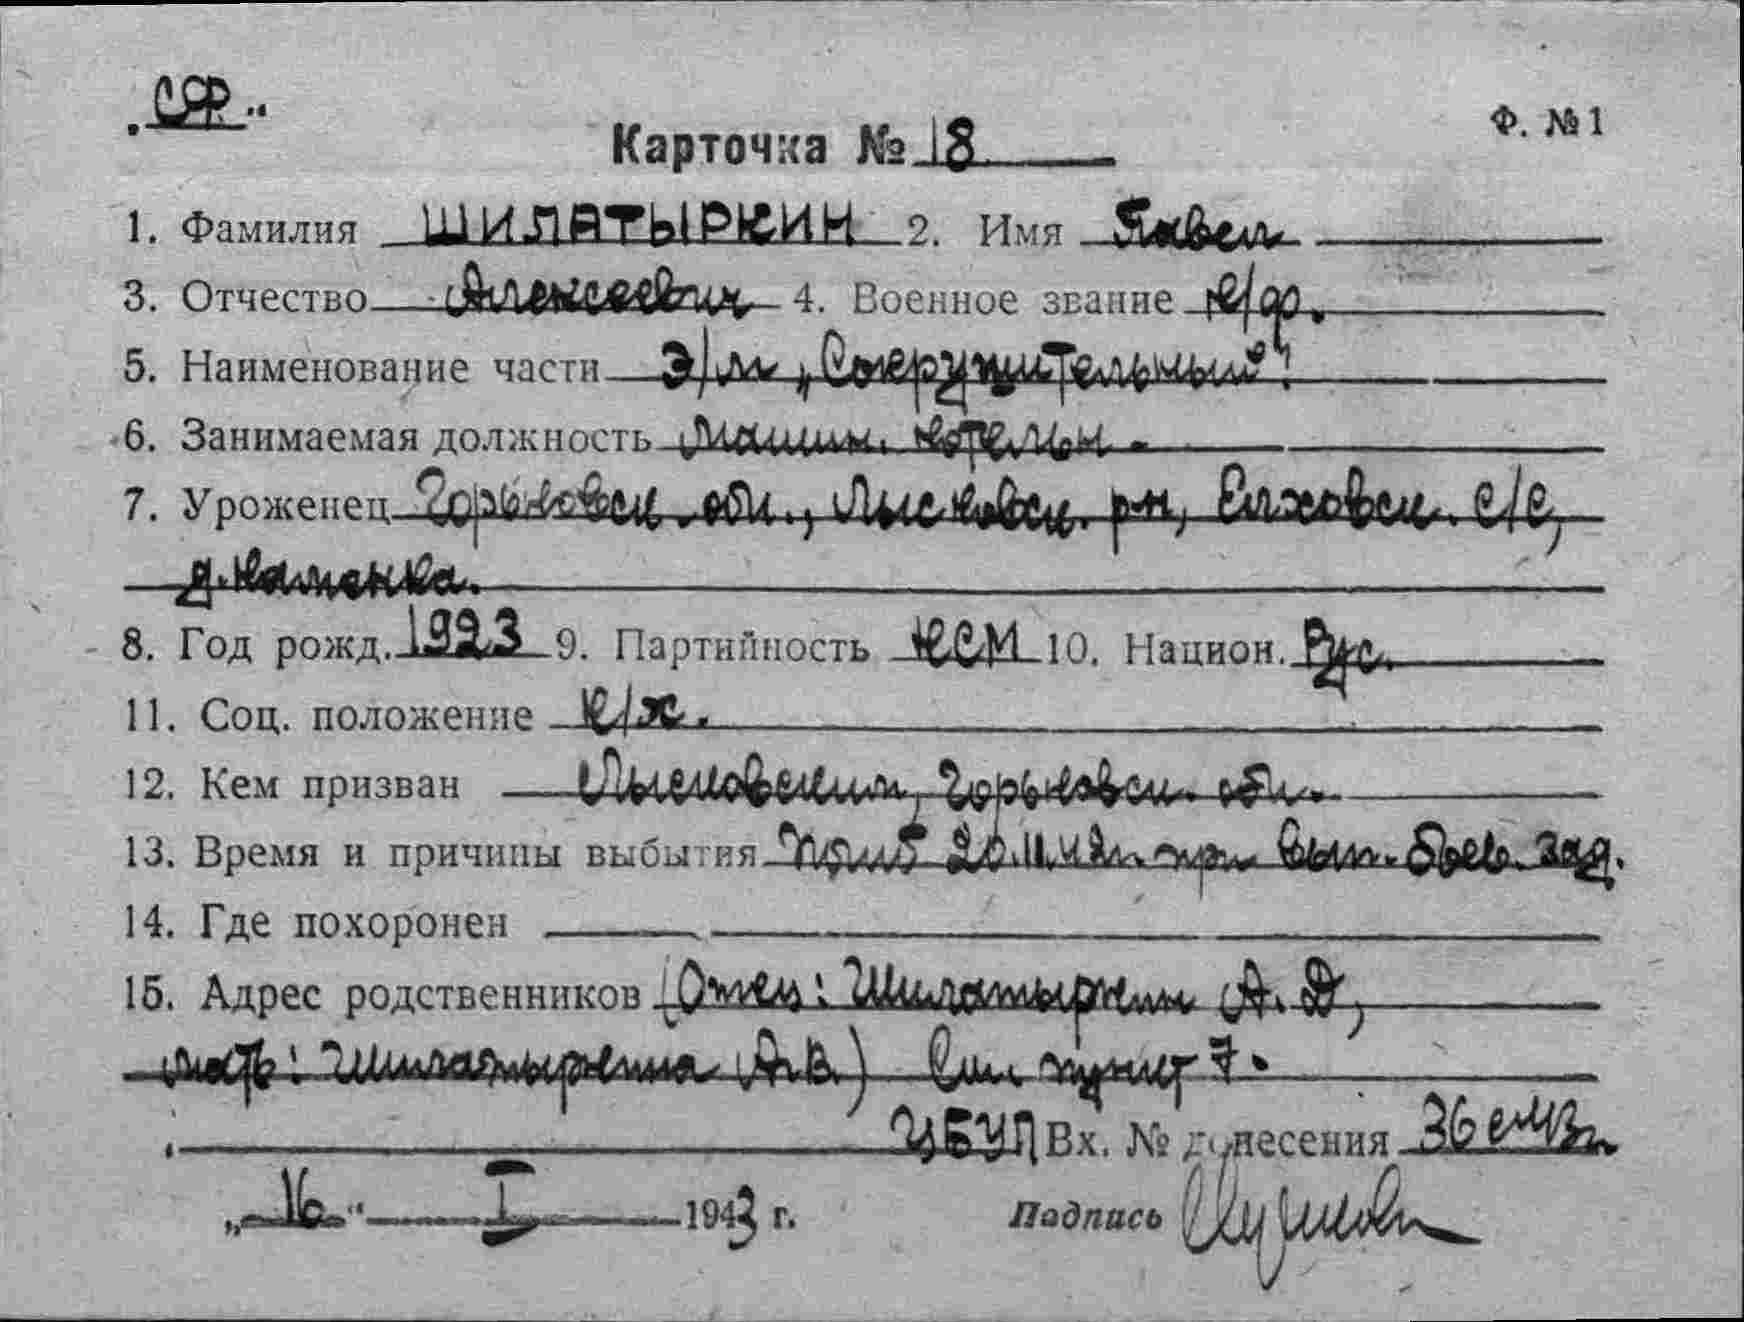 „СФ“
Ф. №1
Карточка № 18
1. Фамилия ШИЛАТЫРКИН 2. Имя Павел
3. Отчество Алексеевич 4. Военное звание к/ф.
5. Наименование части Э/м „Сокрушительный“.
6. Занимаемая должность машин. котельн.
7. Уроженец Горьковск. обл., Лысковск. р-н, Елховск. с/с,
д. Каменка.
8. Год рожд. 1923 9. Партийность КСМ 10. Национ. Рус.
11. Соц. положение к/х.
12. Кем призван Лысковским, Горьковск. обл.
13. Время и причины выбытия Погиб 20.11.42г. при вып. боев. зад.
14. Где похоронен
15. Адрес родственников (Отец: Шилатыркин А. Д,
мать: Шилатыркина А.В.) См. пункт 7.
ЦБУП Вх. № донесения 36
„16“ I 1943 г. Подпись